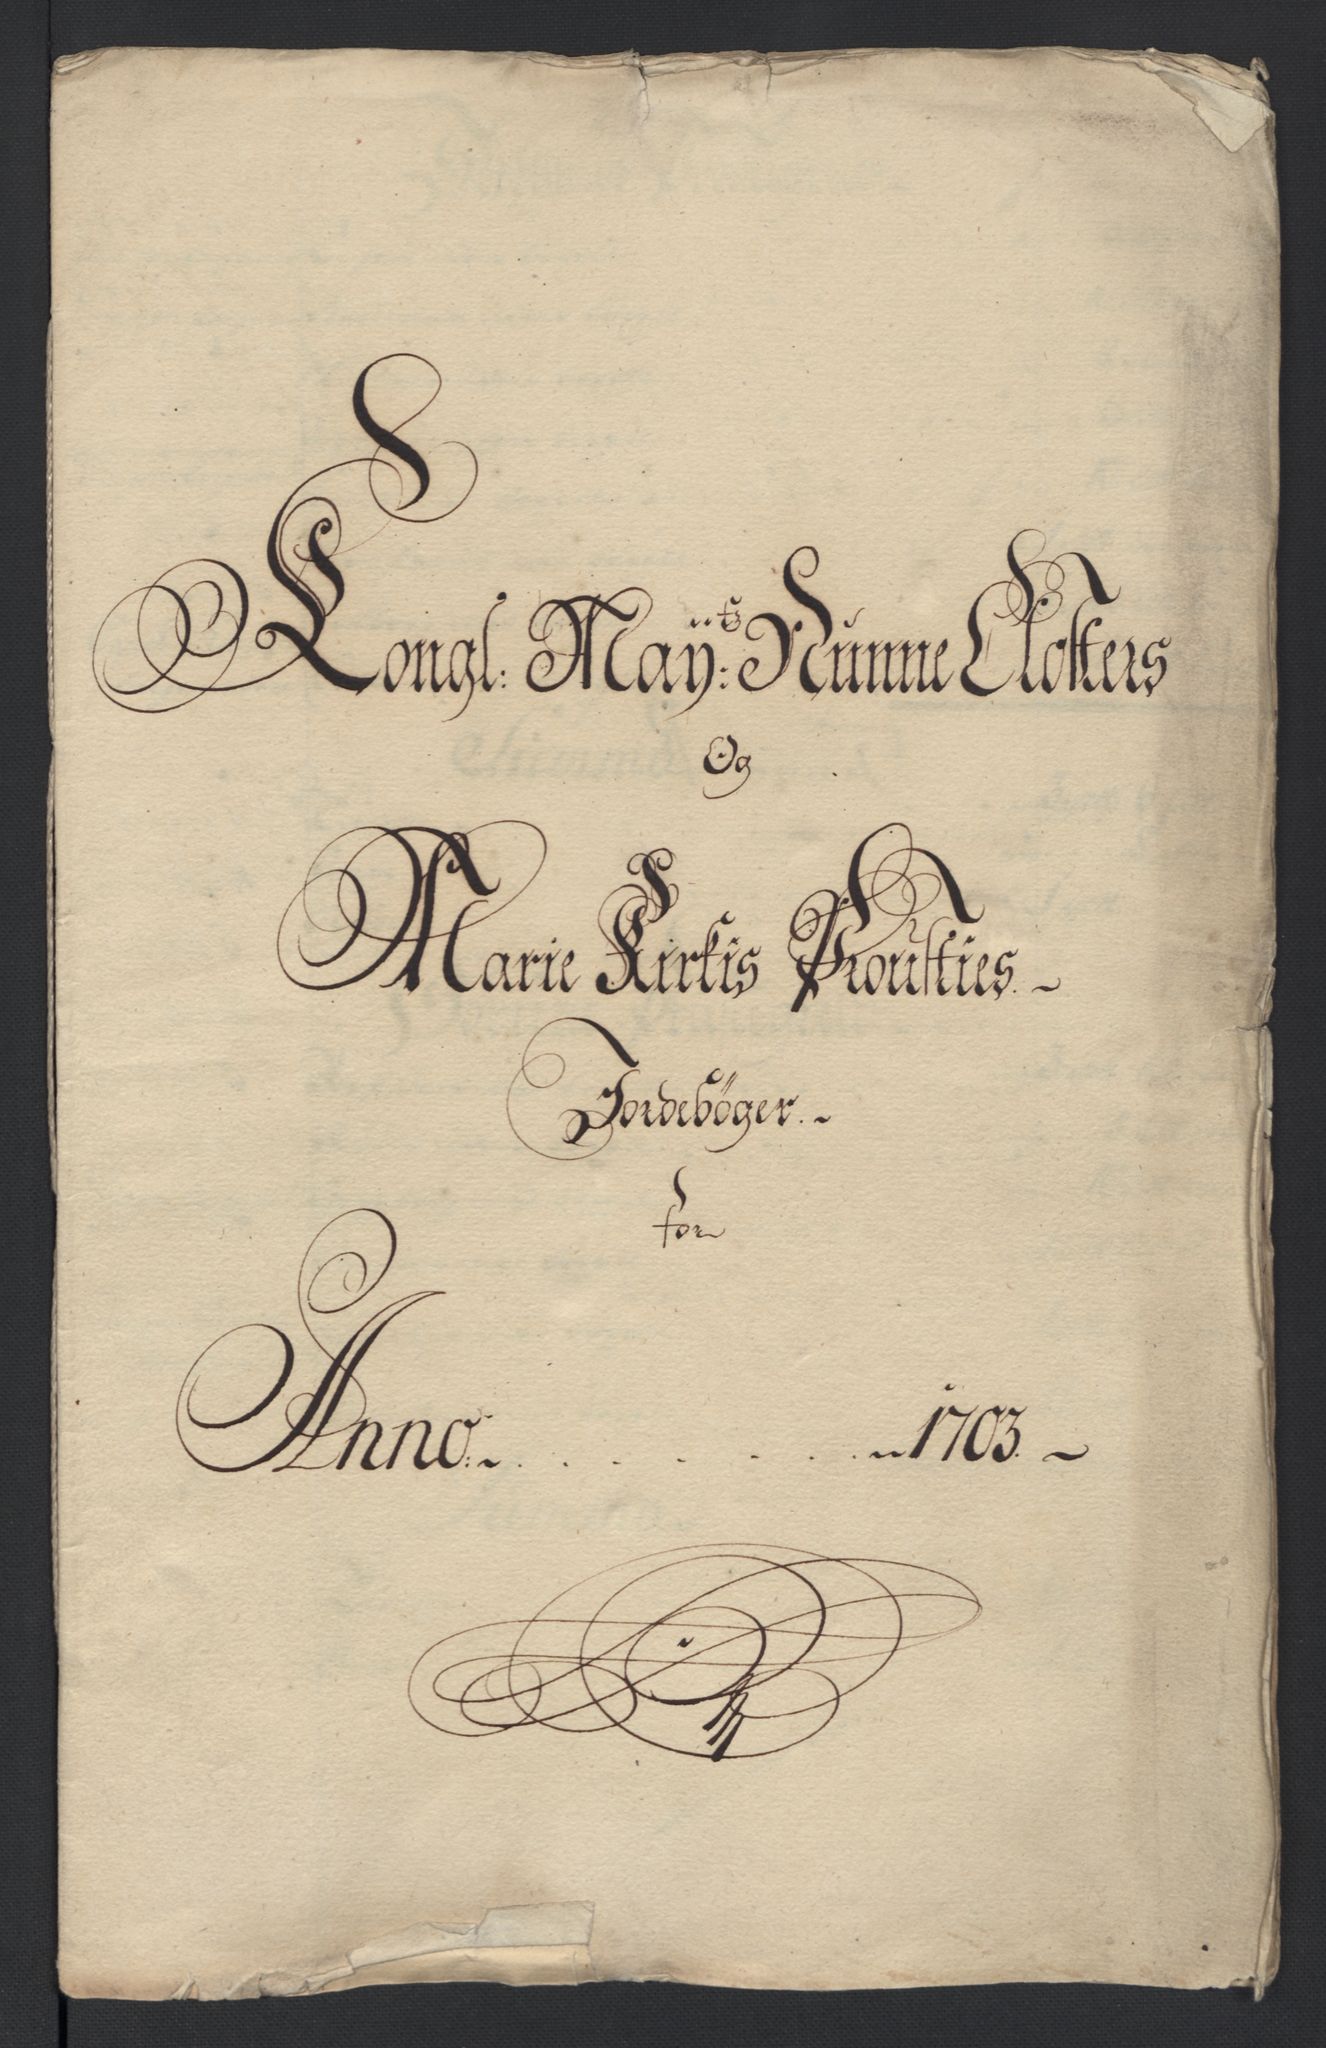 Kongl: Maÿ:ts Nunne Closters
Og
Marie Kirkis Prousties
Jordeböger.
for
Anno. . . . . . . 1703.